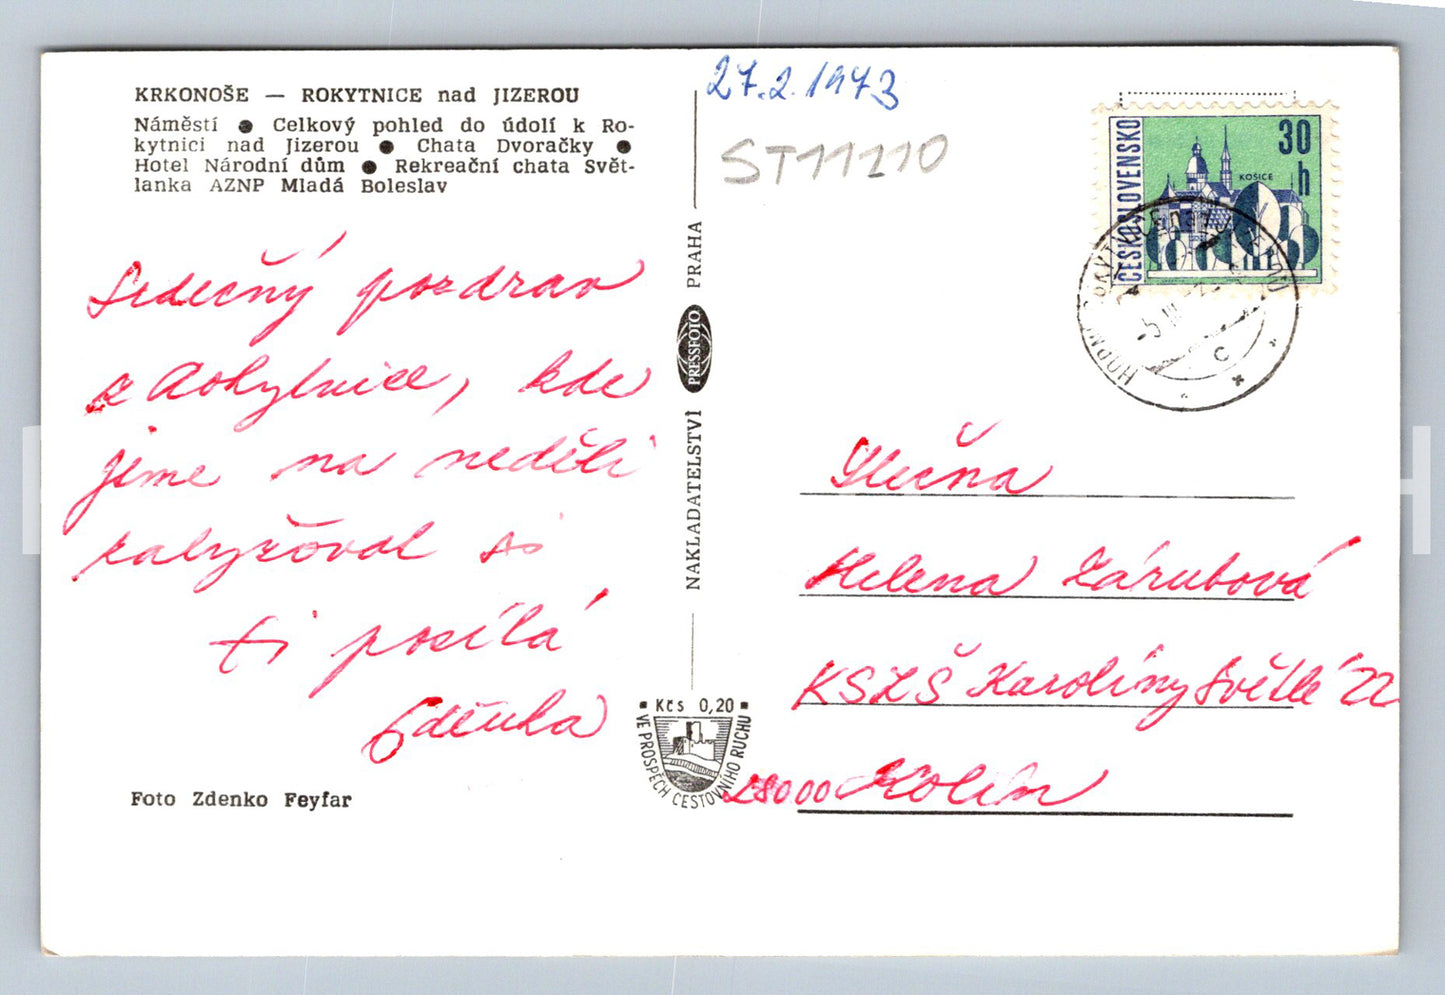 KRKONOŠE — ROKYTNICE nad JIZEROU
Náměstí ● Celkový pohled do údolí k Ro-
kytnici nad Jizerou ● Chata Dvoračky ●
Hotel Národní dům ● Rekreační chata Svět-
lanka AZNP Mladá Boleslav
Srdečný pozdrav
z Rokytnice, kde
jsme na neděli
zalyžovat si
ti posílá
Zdeňka
Foto Zdenko Feyfar
NAKLADATELSTVÍ PRESSFOTO PRAHA
Kčs 0,20
VE PROSPĚCH CESTOVNÍHO RUCHU
27.2.1973
ST11110
ČESKOSLOVENSKO
30
h
KOŠICE
-5.III.
C
Slečna
Helena Zárubová
KSZŠ Karolíny Světlé 22
28000 Kolín